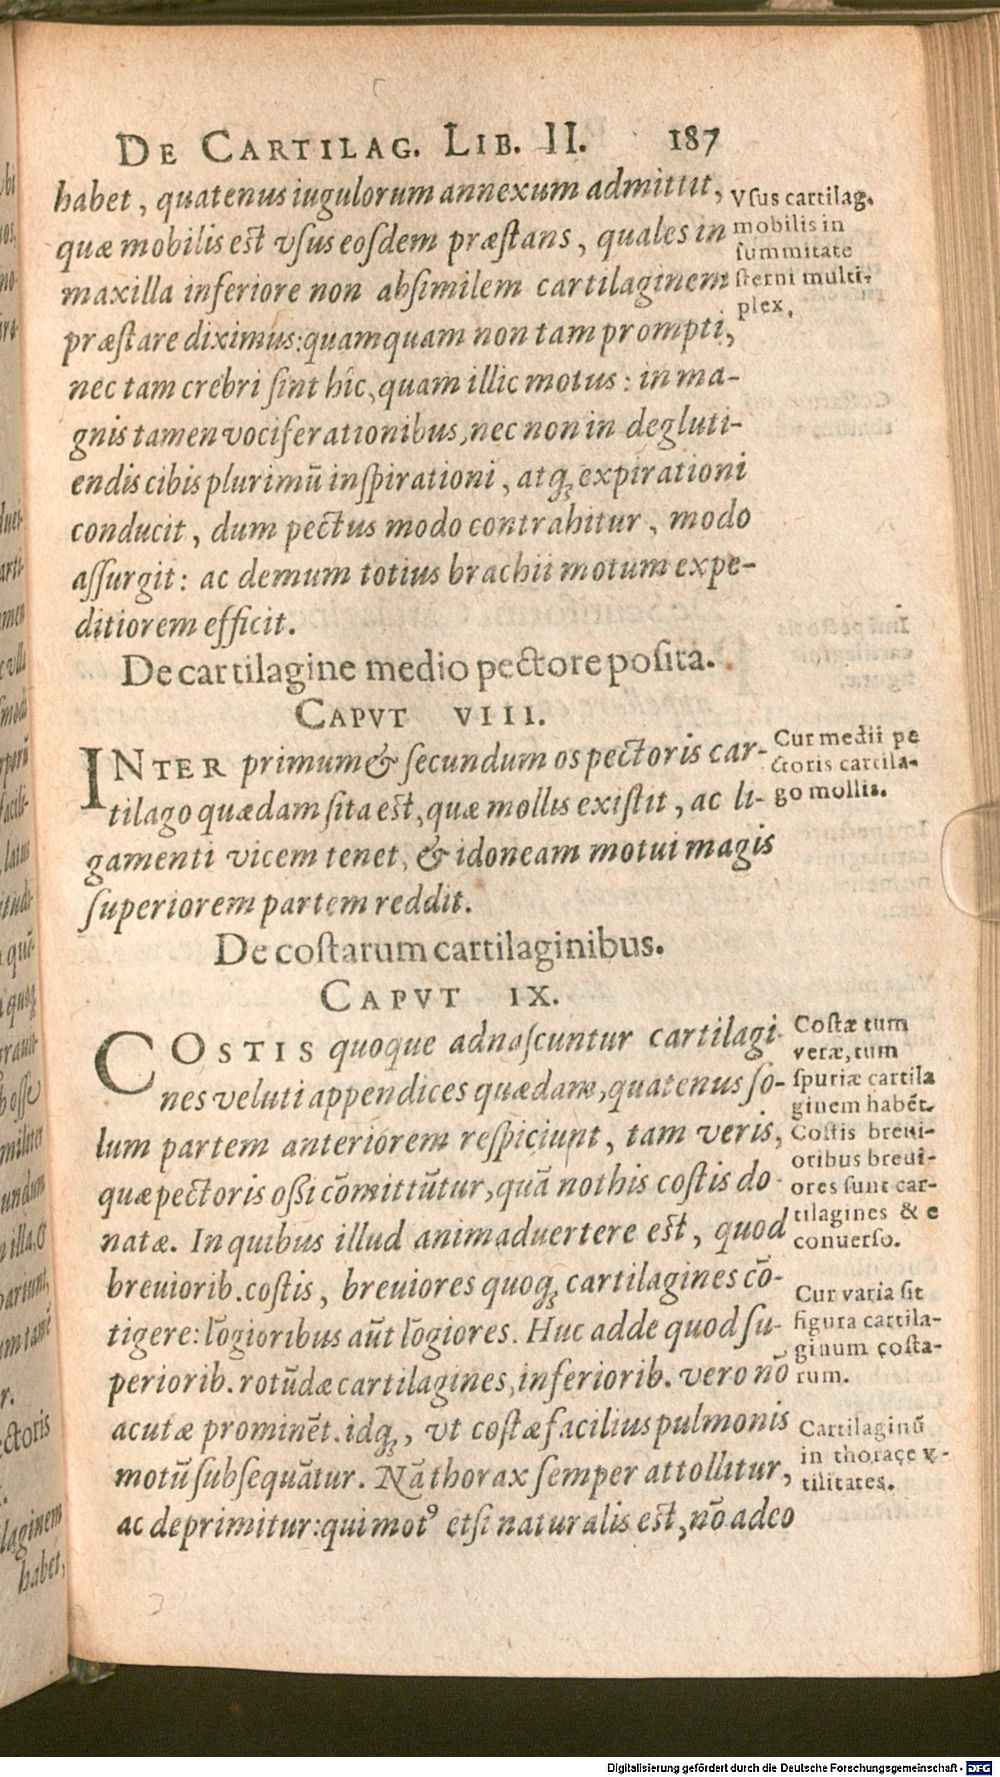 DE CARTILAG. LIB. II. 187
habet, quatenus iugulorum annexum admittit,
quæ mobilis est vsus eosdem præstans, quales in
maxilla inferiore non absimilem cartilaginem
præstare diximus: quamquam non tam prompti,
nec tam crebri sint hîc, quam illic motus: in ma-
gnis tamen vociferationibus, nec non in degluti-
endis cibis plurimū inspirationi, atq; expirationi
conducit, dum pectus modo contrahitur, modo
assurgit: ac demum totius brachii motum expe-
ditiorem efficit.
Vsus cartilag.
mobilis in
summitate
sterni multi-
plex.
De cartilagine medio pectore posita.
CAPVT VIII.
INTER primum & secundum os pectoris car-
tilago quædam sita est, quæ mollis existit, ac li-
gamenti vicem tenet, & idoneam motui magis
superiorem partem reddit.
Cur medii pe
ctoris cartila-
go mollis.
De costarum cartilaginibus.
CAPVT IX.
COSTIS quoque adnascuntur cartilagi-
nes veluti appendices quædam, quatenus so-
lum partem anteriorem respiciunt, tam veris,
quæ pectoris ossi cōmittūtur, quā nothis costis do-
natæ. In quibus illud animaduertere est, quod
breuiorib. costis, breuiores quoq; cartilagines cō-
tigere: lōgioribus aūt lōgiores. Huc adde quod su-
periorib. rotūdæ cartilagines, inferiorib. vero nō
acutæ prominēt. idq;, vt costæ facilius pulmonis
motū subsequātur. Nā thorax semper attollitur,
ac deprimitur: qui motꝰ etsi naturalis est, nō adeo
Costæ tum
veræ, tum
spuriæ cartila
ginem habēt.
Costis breui-
oribus breui-
ores sunt car-
tilagines & e
conuerso.
Cur varia sit
figura cartila-
ginum costa-
rum.
Cartilaginū
in thorace v-
tilitates.
habet,
Digitalisierung gefördert durch die Deutsche Forschungsgemeinschaft - DFG